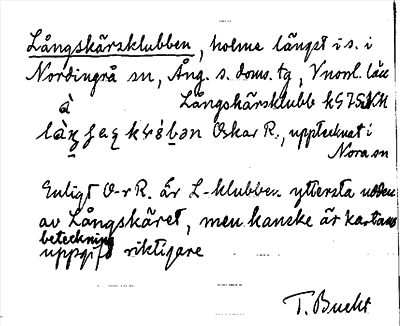 Långskärsklubben, holme längst i s. i
Nordingrå sn, Ång. s. doms. tg, Vnorrl. län
à
Långskärsklubb k 575
Oskar R., upptecknat i
Nora sn
Enligt O-r R. är L-klubben yttersta udden
av Långskäret, men kanske är kartans
beteckning
uppgift riktigare
T. Bucht